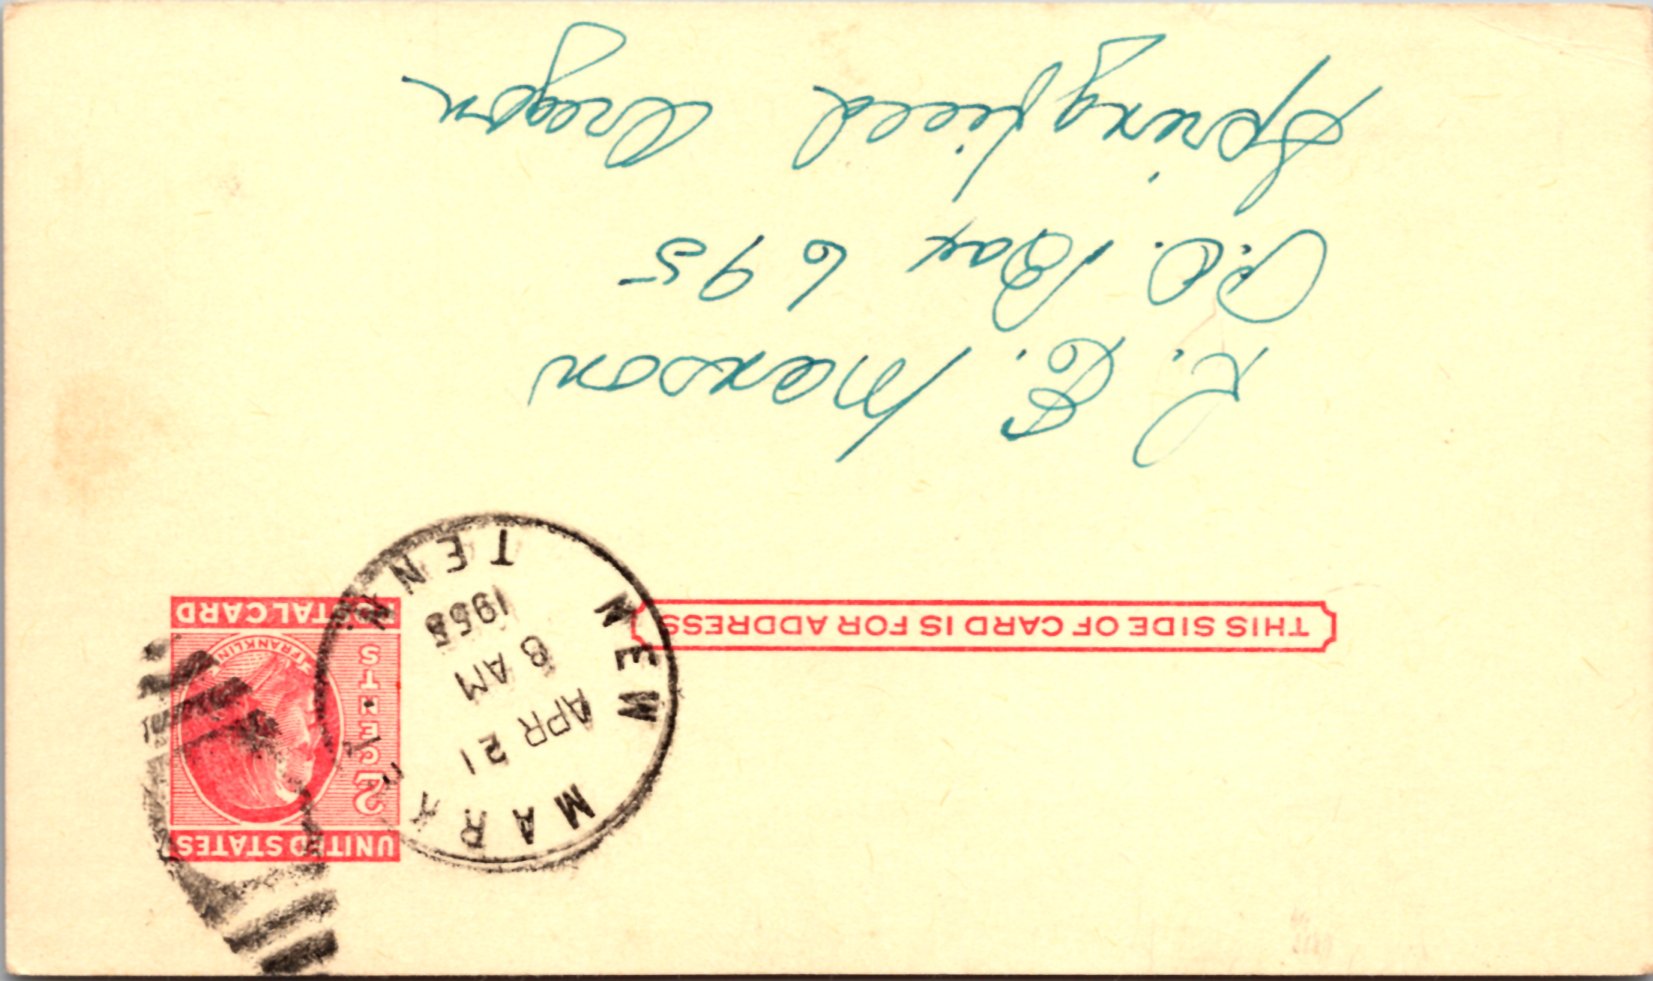 THIS SIDE OF CARD IS FOR ADDRESS
UNITED STATES
2 CENTS
FRANKLIN
POSTAL CARD
NEW MARKET
TENN.
APR 21
8 AM
1958
R. E. Maxson
P.O. Box 695
Springfield Oregon